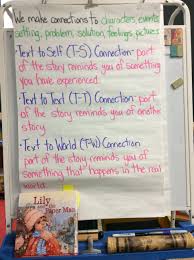 We make connections to characters, events,
setting, problem, solution, feelings, pictures
• Text to Self (T-S) Connection- part
of the story reminds you of something
you have experienced.
• Text to Text (T-T) Connection- part
of the story reminds you of another
story.
• Text to World (T-W) Connection
part of the story reminds you of
something that happens in the real
world.
Lily
and the
Paper Man